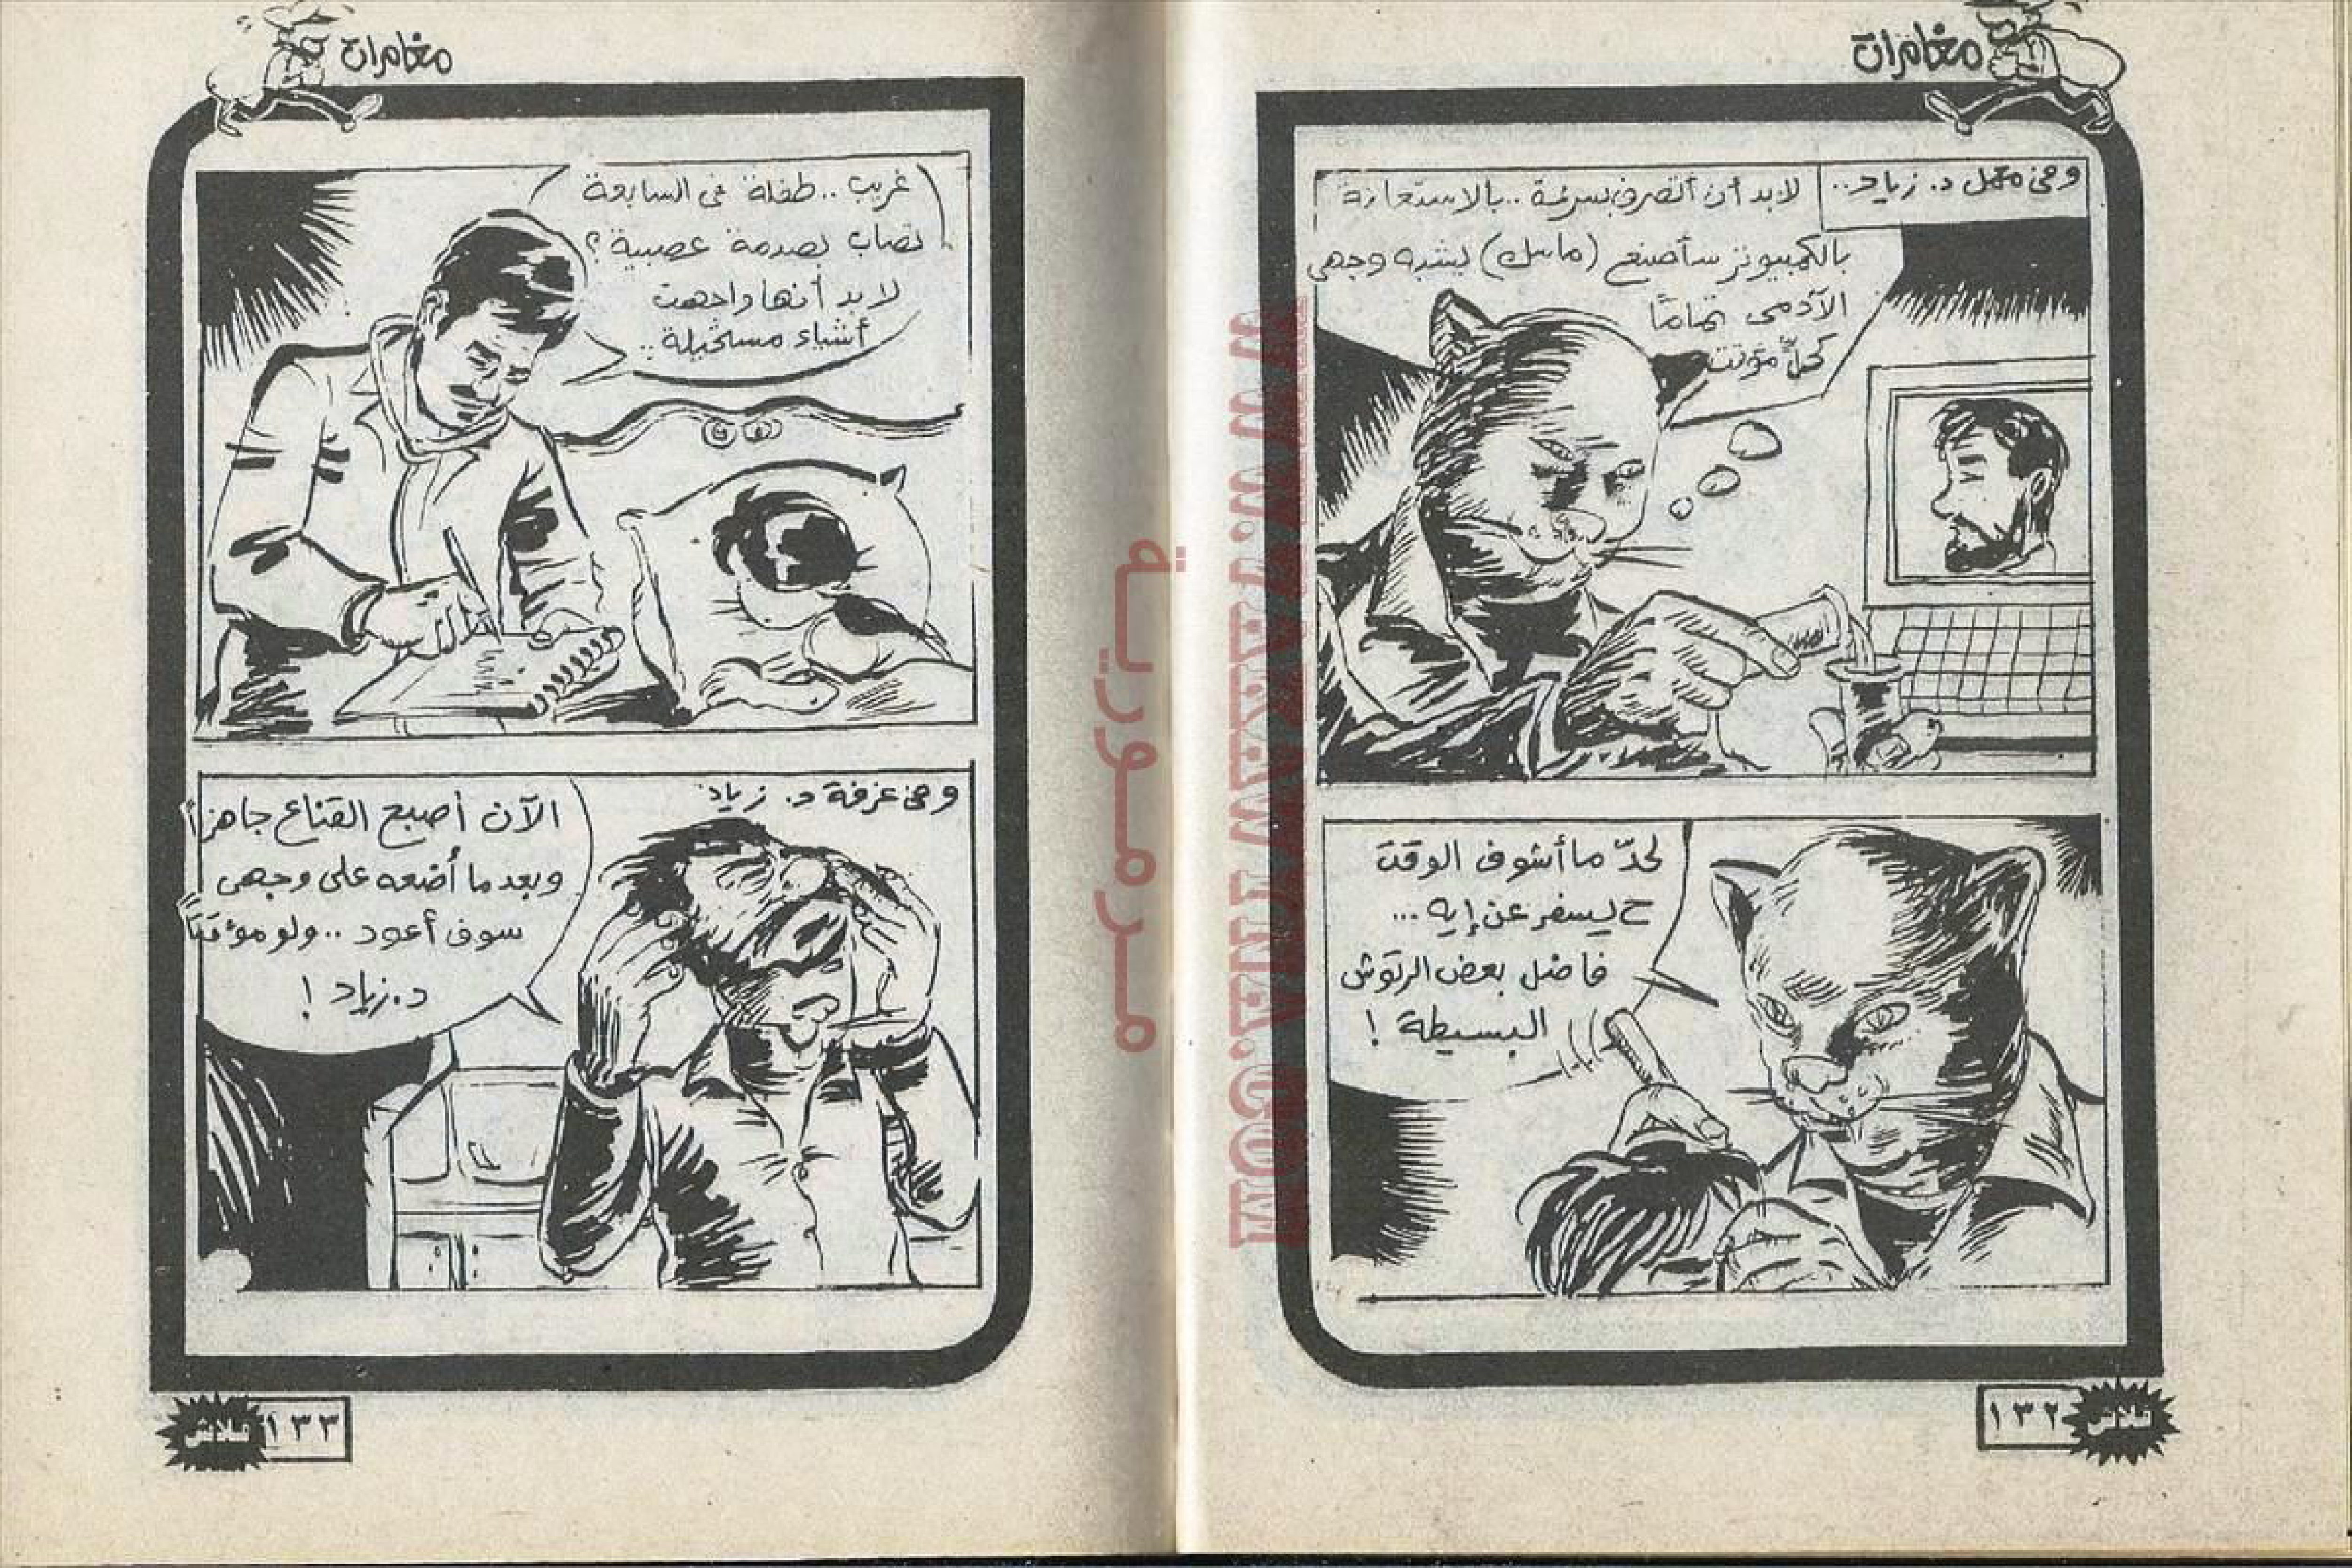 مغامرات
وفى معمل د. زياد..
لابد أن أتصرف بسرعة.. بالاستعانة
بالكمبيوتر سأصنع (ماسك) يشبه وجهى
الآدمى تمامًا
كحلٍّ مؤقت
لحدّ ما أشوف الوقت
ح يسفر عن إيه...
فاضل بعض الرتوش
البسيطة !
١٣٢
فلاش
مغامرات
غريب.. طفلة فى السابعة
تصاب بصدمة عصبية ؟
لابد أنها واجهت
أشياء مستحيلة..
وفى غرفة د. زياد
الآن أصبح القناع جاهزاً
وبعد ما أضعه على وجهى
سوف أعود.. ولو مؤقتًا
د. زياد !
١٣٣
فلاش
مرمورية